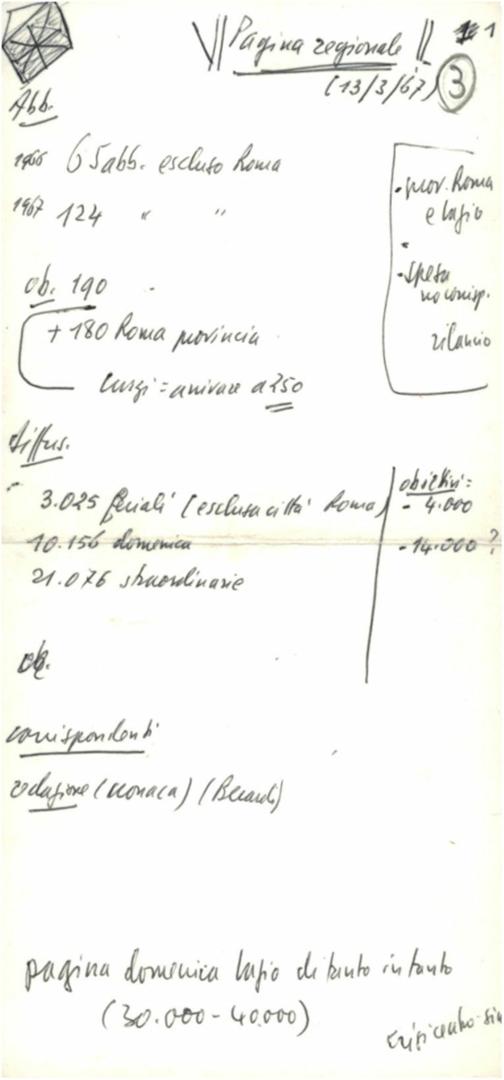 Pagina regionale # 1
(13/3/67) 3
Abb.
1966 65 abb. escluso Roma
1967 124 " "
ob. 190
+ 180 Roma provincia
Lungi = arrivare a 250
• prov. Roma
e Lazio
• spesa
no corrisp.
rilancio
diffus.
3.025 feriali (esclusa città Roma)
10.156 domenica
21.076 straordinarie
obiettivi =
- 4.000
- 14.000 ?
ob.
corrispondenti
redazione (cronaca) (Berardi)
pagina domenica Lazio di tanto in tanto
(30.000 - 40.000)